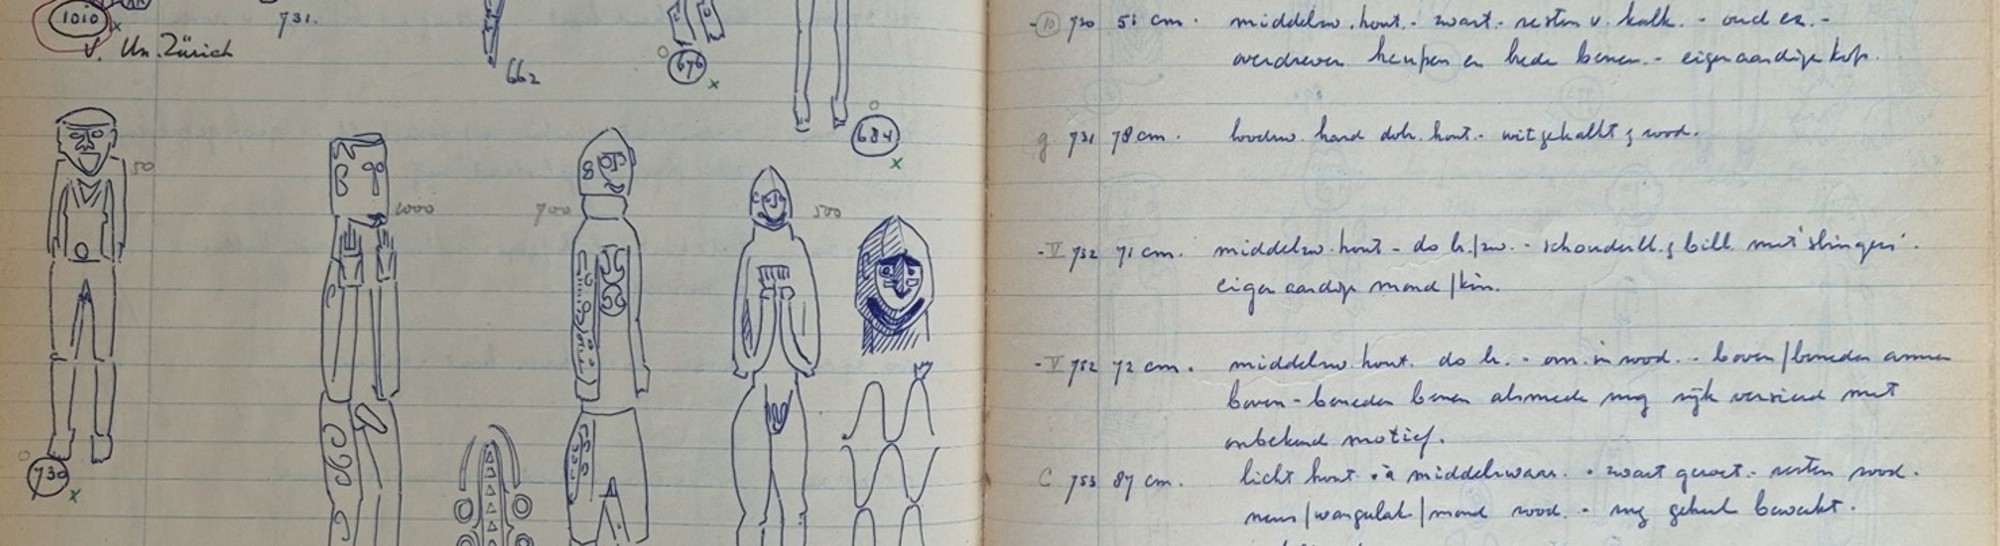 1010
v. Un. Zürich
731.
662
676
684
50
1000
700
500
730
-10 730 51 cm. middelzw. hout. - zwart. - resten v. kalk. - oud ex. -
overdreven heupen en brede benen. - eigenaardige kop.
g 731 78 cm. loodzw. hard do br. hout. - witgekalkt & rood.
-V 732 71 cm. middelzw. hout - do br./zw. - schouderbl. & bill. met 'slingers'.
eigenaardige mond/kin.
-V 752 72 cm. middelzw. hout. do br. - orn. in rood. - boven/beneden armen
boven-beneden benen alsmede rug rijk versierd met
onbekend motief.
C 753 87 cm. licht hout à middelzwaar. - zwart geroet. - resten rood.
neus/ /mond rood. - rug geheel bewerkt.